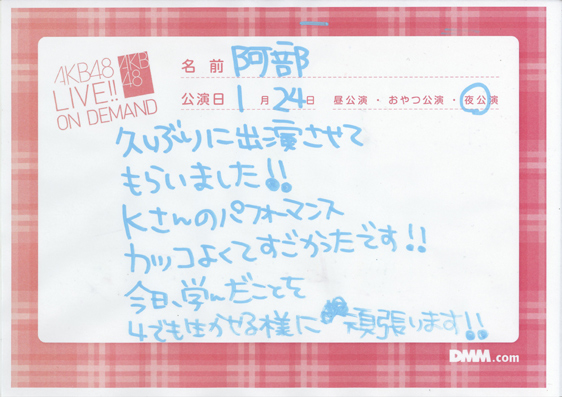 AKB48
LIVE!!
ON DEMAND
AKB
48
名前 阿部
公演日 1月24日 昼公演・おやつ公演・夜公演
久しぶりに出演させて
もらいました!!
Kさんのパフォーマンス
カッコよくてすごかったです!!
今日、学んだことを
4でも生かせる様に頑張ります!!
DMM.com